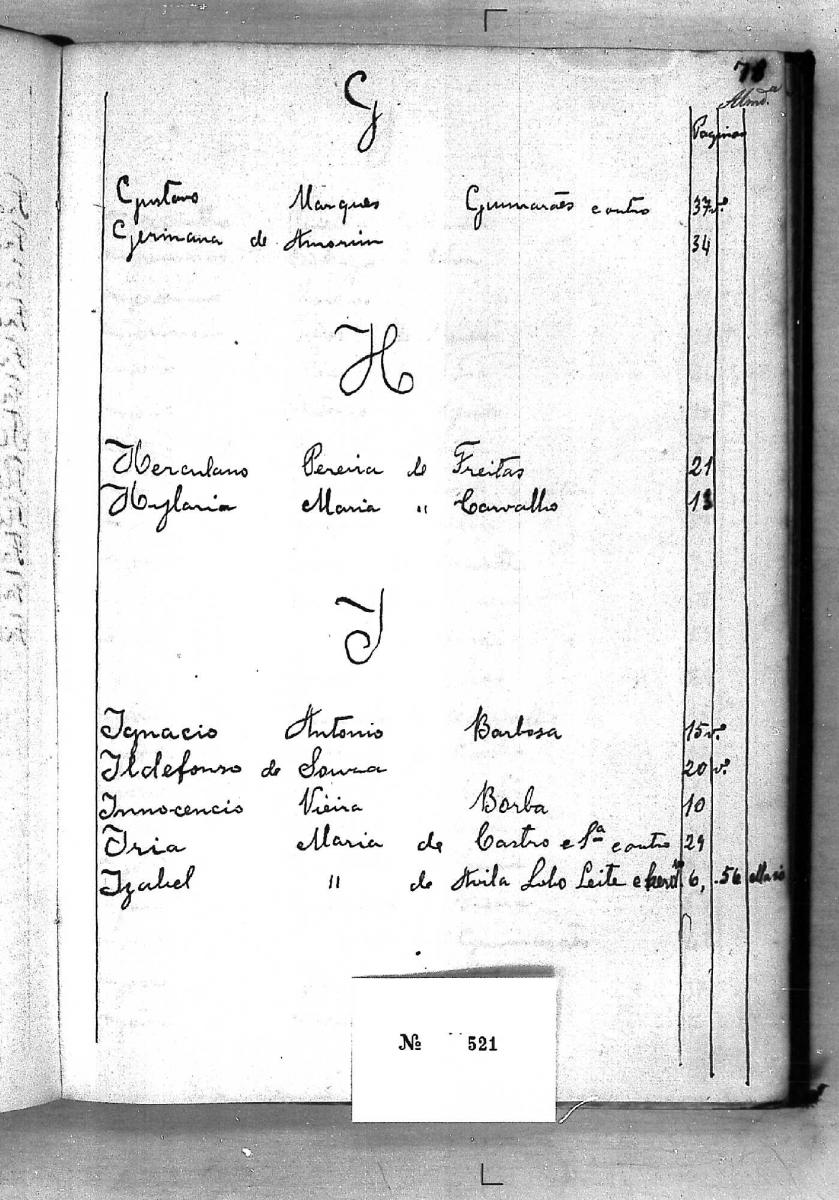 Almd.ª
Paginas
G
Gustavo Marques Guimarães e outro 37 v.º
Germana de Amorim 34
H
Herculano Pereira de Freitas 21
Hylaria Maria " Carvalho 13
I
Ignacio Antonio Barbosa 15 v.º
Ildefonso de Souza 20 v.º
Innocencio Vieira Borba 10
Iria Maria de Castro e S.ª e outro 29
Izabel " de Avila Lobo Leite e 6, 56
№ 521